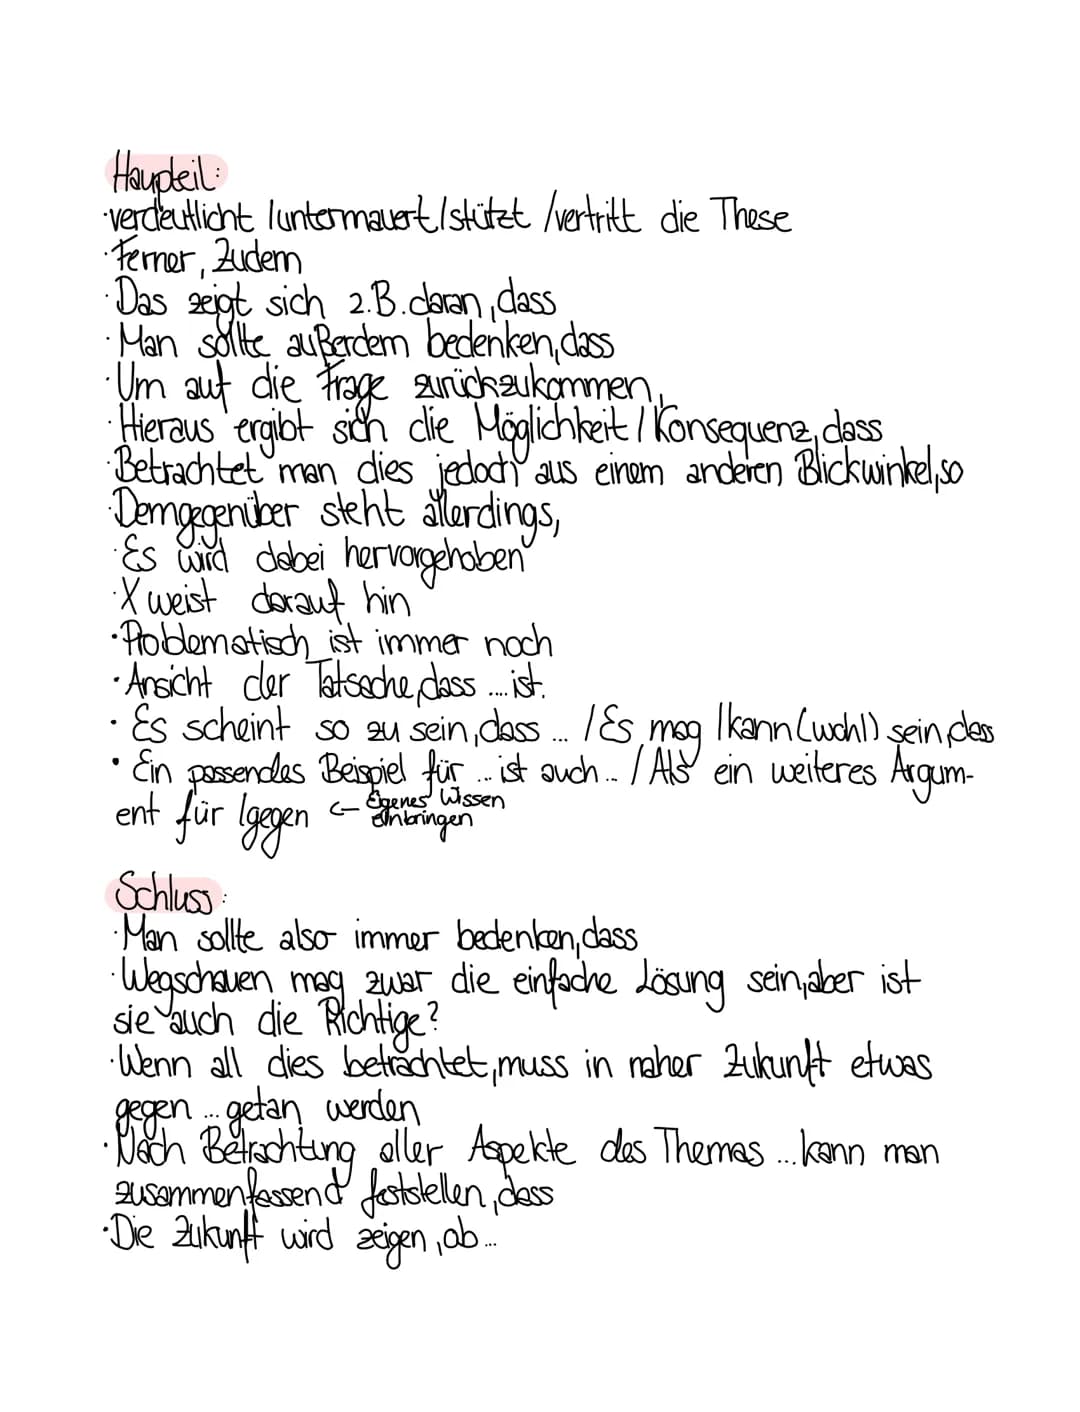 Haupteil:
·verdeutlicht /untermauert/stützt /vertritt die These
·Ferner, Zudem
·Das zeigt sich z.B. daran, dass
·Man sollte außerdem bedenken, dass
·Um auf die Frage zurückzukommen,
·Hieraus ergibt sich die Möglichkeit / Konsequenz, dass
·Betrachtet man dies jedoch aus einem anderen Blickwinkel, so
·Demgegenüber steht allerdings,
·Es wird dabei hervorgehoben
·X weist darauf hin
·Problematisch ist immer noch
·Ansicht der Tatsache, dass .... ist.
· Es scheint so zu sein, dass ... / Es mag /kann (wohl) sein, dass
· Ein passendes Beispiel für ... ist auch... / Als ein weiteres Argum-
ent für /gegen ← Eigenes Wissen
einbringen
Schluss:
·Man sollte also immer bedenken, dass
·Wegschauen mag zwar die einfache Lösung sein, aber ist
sie auch die Richtige?
·Wenn all dies betrachtet, muss in naher Zukunft etwas
gegen ... getan werden
·Nach Betrachtung aller Aspekte des Themas ... kann man
zusammenfassend feststellen, dass
·Die Zukunft wird zeigen, ob ...